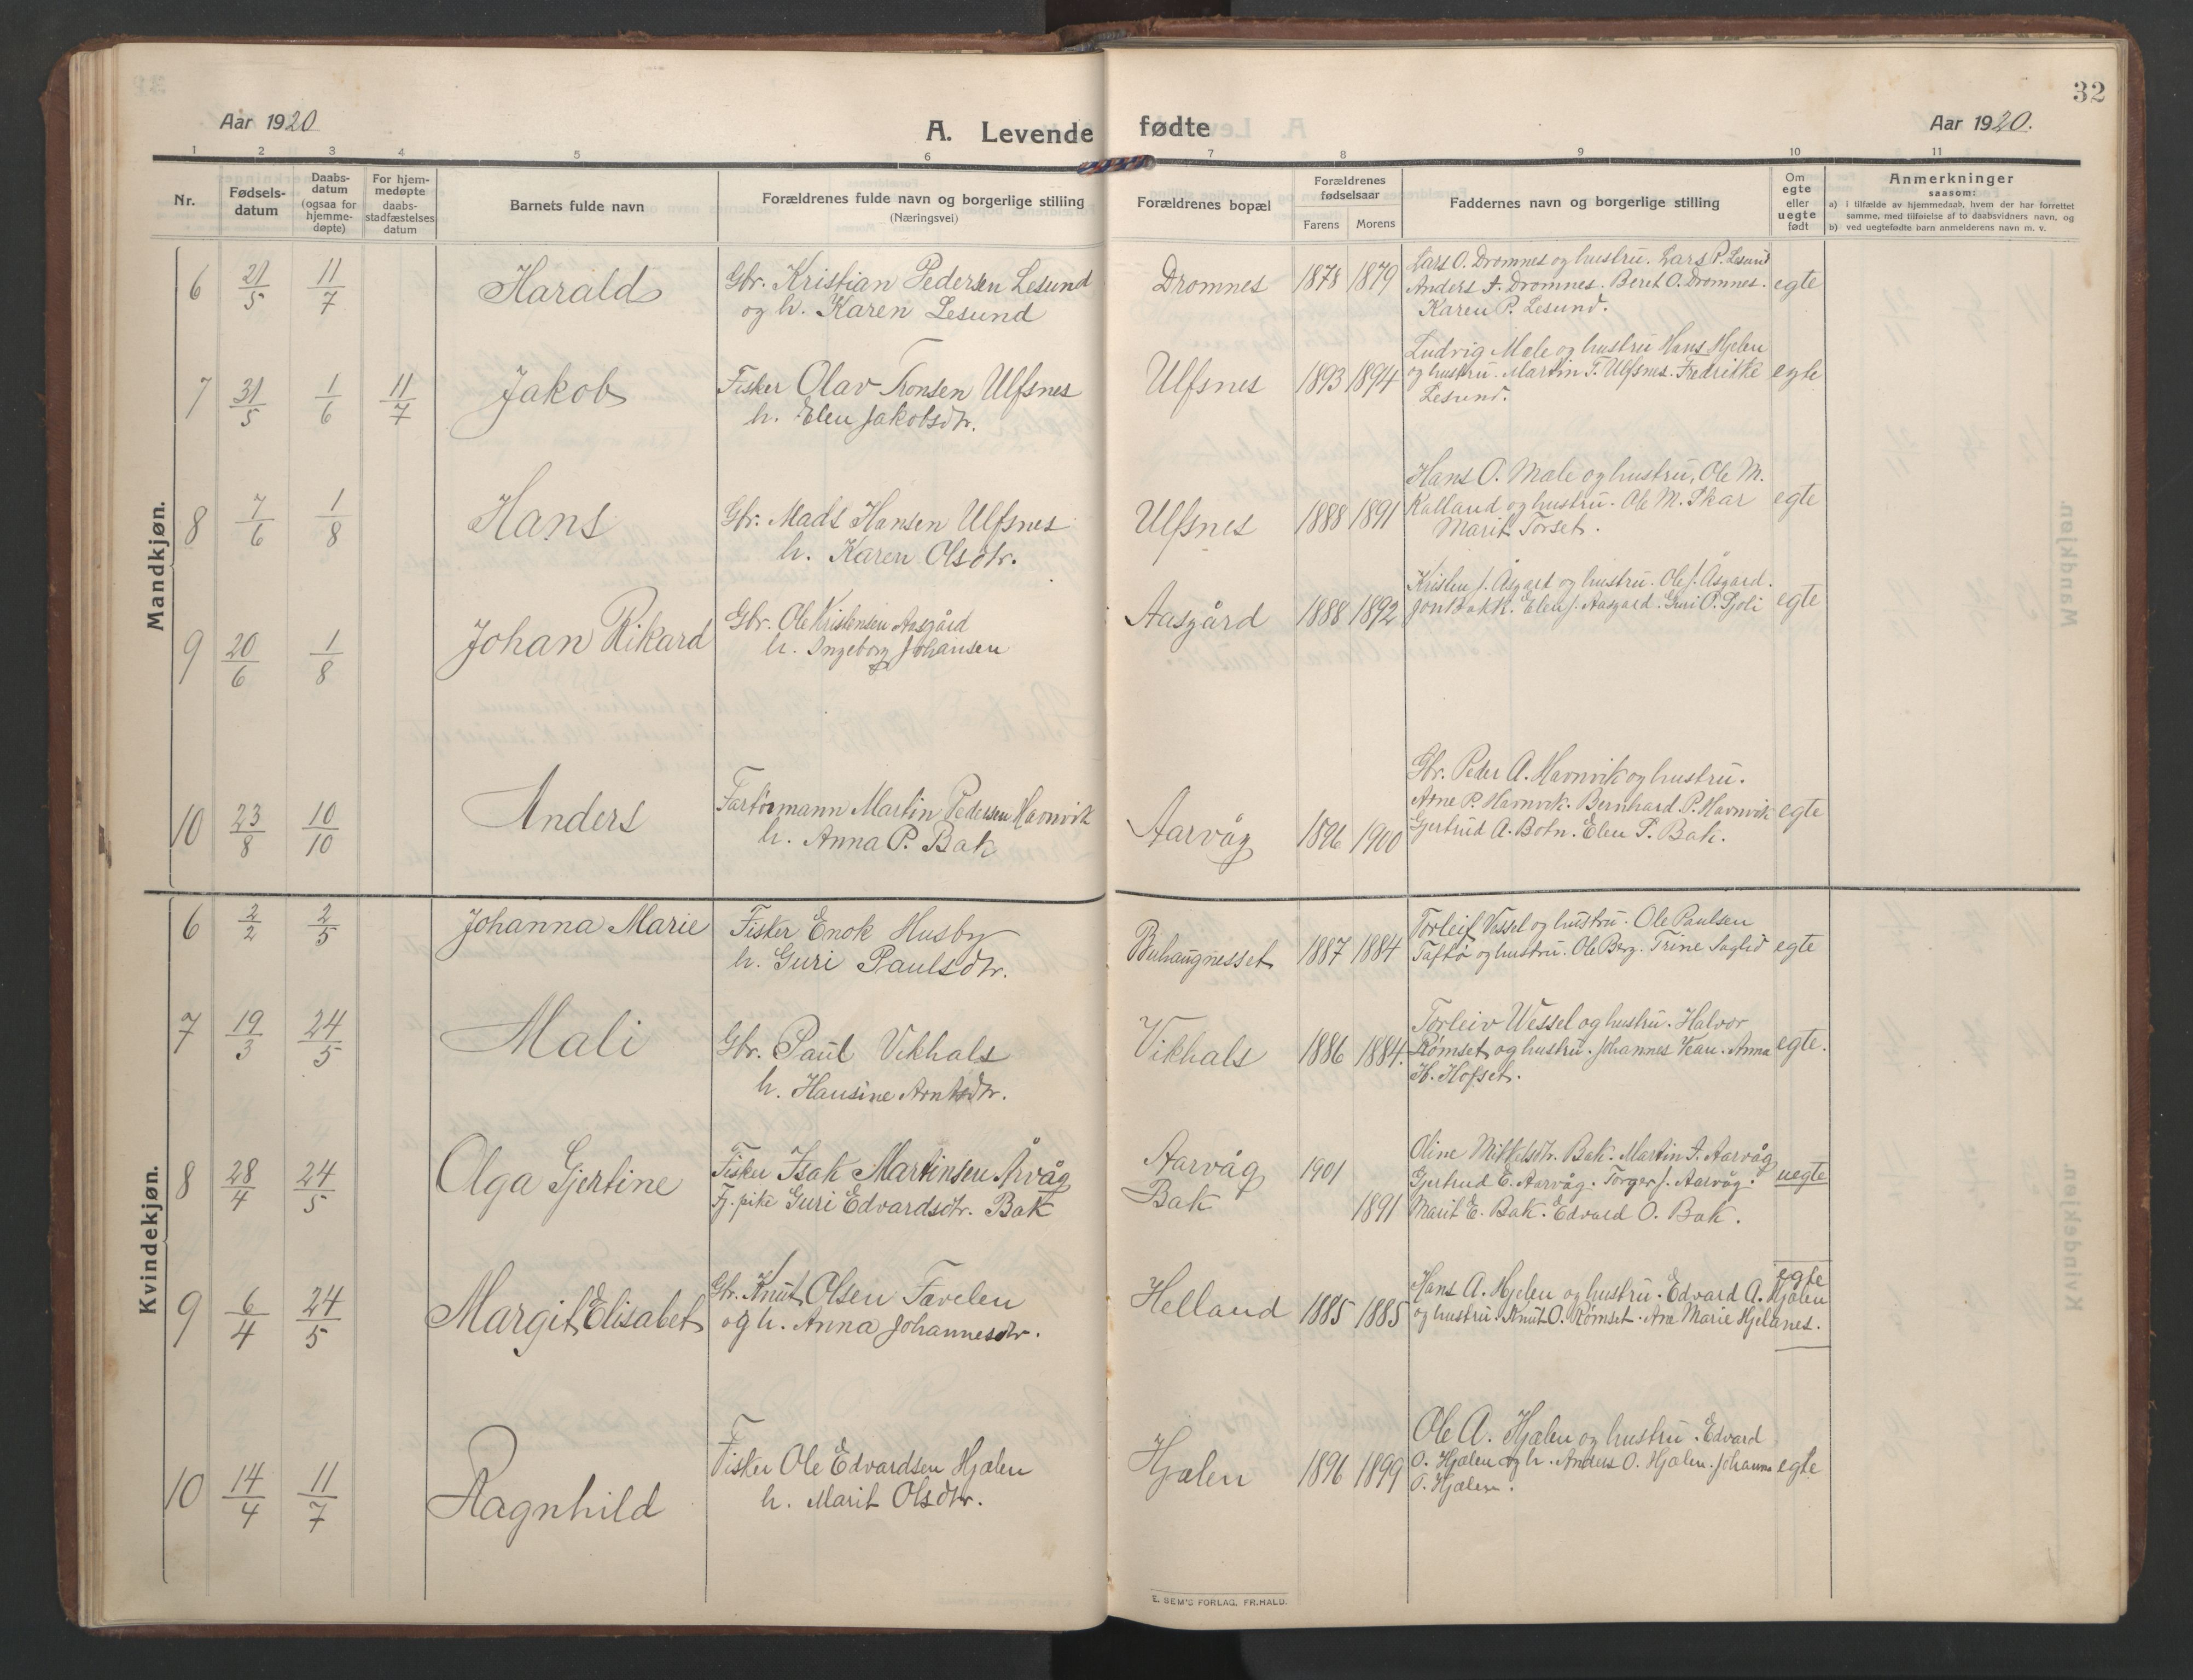 32
Aar 1920
A. Levende fødte
Aar 1920.
1 2 3 4 5 6 7 8 9 10 11
Nr.
Fødsels-
datum
Daabs-
datum
(ogsaa for
hjemme-
døpte)
For hjem-
medøpte
daabs-
stadfæstelses
datum
Barnets fulde navn
Forældrenes fulde navn og borgerlige stilling
(Næringsvei)
Forældrenes bopæl
Forældrenes
fødselsaar
Farens Morens
Faddernes navn og borgerlige stilling
Om
egte
eller
uegte
født
Anmerkninger
saasom:
a) i tilfælde av hjemmedaab, hvem der har forrettet
samme, med tilføielse af to daabsvidners navn, og
b) ved uegtefødte barn anmelderens navn m. v.
Mandkjøn.
6 21/5 11/7 Harald
Gbr. Kristian Pedersen Lesund
og h. Karen Lesund
Dromnes 1878 1879
Lars O. Dromnes og hustru. Lars P. Lesund
Anders A. Dromnes. Beret O. Dromnes.
Karen P. Lesund.
egte
7 31/5 1/6 11/7 Jakob
Fisker Olav Tronsen Ulfsnes
h. Elen Jakobsdtr.
Ulfsnes 1893 1894
Ludvig Mæle og hustru Hans Hjelen
og hustru. Martin T. Ulfsnes. Fredrikke
Lesund.
egte
8 7/6 1/8 Hans
Gbr. Mads Hansen Ulfsnes
h. Karen Olsdtr.
Ulfsnes 1888 1891
Hans O. Mæle og hustru, Ole M.
Kalland og hustru. Ole M. Skar
Marit Torset.
egte
9 20/6 1/8 Johan Rikard
Gbr. Ole Kristensen Aasgård
h. Ingeborg Johansen
Aasgård 1888 1892
Kristen J. Åsgard og hustru. Ole J. Åsgard.
Jon Bakk. Elen J. Aasgard. Guri O. Gjøli
egte
10 23/8 10/10 Anders
Fartøimann Martin Pedersen Havnvik
h. Anna P. Bak
Aarvåg 1896 1900
Gbr. Peder A. Havnvik og hustru.
Arne P. Havnvik. Bernhard P. Havnvik
Gjertrud A. Botn. Elen P. Bak.
egte
Kvindekjøn.
6 2/2 2/5 Johanna Marie
Fisker Enok Husby
h. Guri Paulsdtr.
Buhaugnesset 1887 1884
Torleif Vessel og hustru. Ole Paulsen
Taftø og hustru. Ole Berg. Trine Saglid
egte
7 19/3 24/5 Mali
Gbr. Paul Vikhals
h. Hansine Arntsdtr.
Vikhals 1886 1884.
Torleiv Wessel og hustru. Halvor
Rømset og hustru. Johannes Vean. Anna
H. Hofset.
egte.
8 28/4 24/5 Olga Gjertine
Fisker Isak Martinsen Årvåg
Fj. pike Guri Edvardsdtr. Bak
Aarvåg
Bak
1901
1891
Oline Mikkelsdtr. Bak. Martin A. Aarvåg
Gjertrud E. Aarvåg. Torger J. Aarvåg.
Marit E. Bak. Edvard O. Bak.
uegte
9 6/4 24/5 Margit Elisabet
Gbr. Knut Olsen Tavelen
og h. Anna Johannesdtr.
Helland 1885 1885
Hans A. Hjelen og hustru. Edvard A. Hjælen
og hustru. Knut O. Rømset. Ane Marie Hjelanes.
egte
10 14/4 11/7 Ragnhild
Fisker Ole Edvardsen Hjælen
h. Marit Olsdtr.
Hjælen 1896 1899
Ole A. Hjælen og hustru. Edvard
O. Hjælen og h. Anders O. Hjælen. Johanna
O. Hjælen.
egte
E. SEM'S FORLAG, FR.HALD.